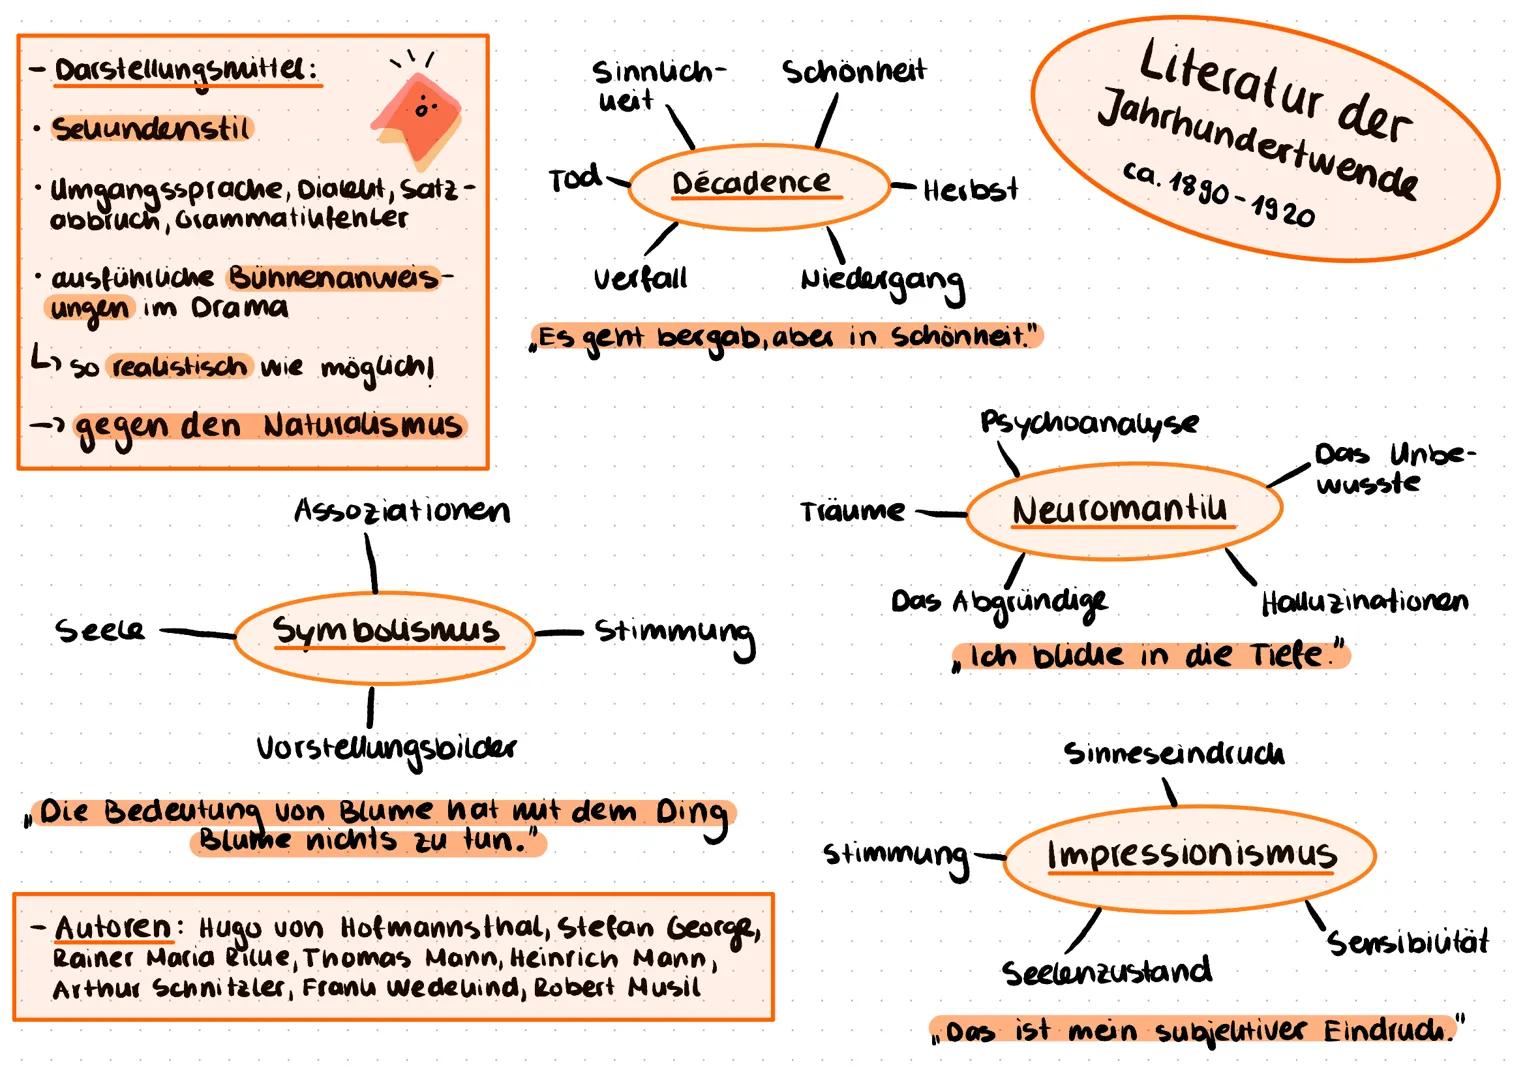 Literatur der
Jahrhundertwende
ca. 1890-1920
- Darstellungsmittel:
· Sekundenstil
· Umgangssprache, Dialekt, Satz-
abbruch, Grammatikfehler
· ausführliche Bühnenanweis-
ungen im Drama
↳ so realistisch wie möglich!
→ gegen den Naturalismus
Sinnlich-
keit
Schönheit
Tod
Décadence
Herbst
Verfall
Niedergang
„Es geht bergab, aber in Schönheit."
Psychoanalyse
Das Unbe-
wusste
Träume
Neuromantik
Das Abgründige
Halluzinationen
„Ich blicke in die Tiefe."
Assoziationen
Seele
Symbolismus
Stimmung
Vorstellungsbilder
„Die Bedeutung von Blume hat mit dem Ding
Blume nichts zu tun."
Sinneseindruck
Stimmung
Impressionismus
Seelenzustand
Sensibilität
„Das ist mein subjektiver Eindruck."
- Autoren: Hugo von Hofmannsthal, Stefan George,
Rainer Maria Rilke, Thomas Mann, Heinrich Mann,
Arthur Schnitzler, Frank Wedekind, Robert Musil